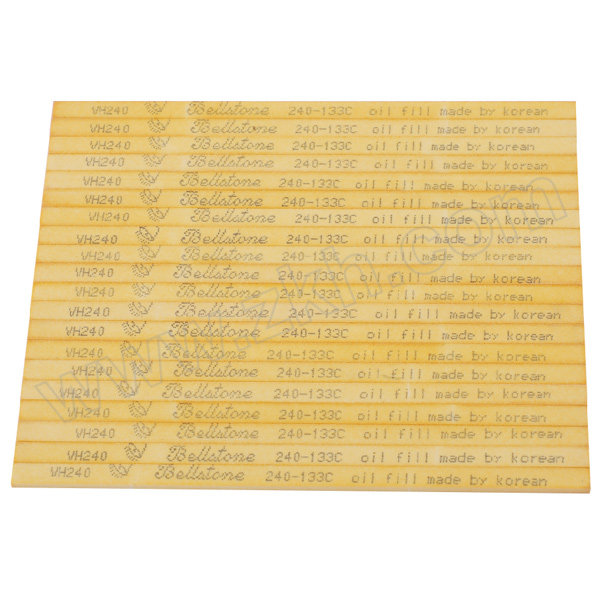 VH240 Bellstone 240-133C oil fill made by korean
VH240 Bellstone 240-133C oil fill made by korean
VH240 Bellstone 240-133C oil fill made by korean
VH240 Bellstone 240-133C oil fill made by korean
VH240 Bellstone 240-133C oil fill made by korean
VH240 Bellstone 240-133C oil fill made by korean
VH240 Bellstone 240-133C oil fill made by korean
VH240 Bellstone 240-133C oil fill made by korean
VH240 Bellstone 240-133C oil fill made by korean
VH240 Bellstone 240-133C oil fill made by korean
VH240 Bellstone 240-133C oil fill made by korean
VH240 Bellstone 240-133C oil fill made by korean
VH240 Bellstone 240-133C oil fill made by korean
VH240 Bellstone 240-133C oil fill made by korean
VH240 Bellstone 240-133C oil fill made by korean
VH240 Bellstone 240-133C oil fill made by korean
VH240 Bellstone 240-133C oil fill made by korean
VH240 Bellstone 240-133C oil fill made by korean
VH240 Bellstone 240-133C oil fill made by korean
VH240 Bellstone 240-133C oil fill made by korean